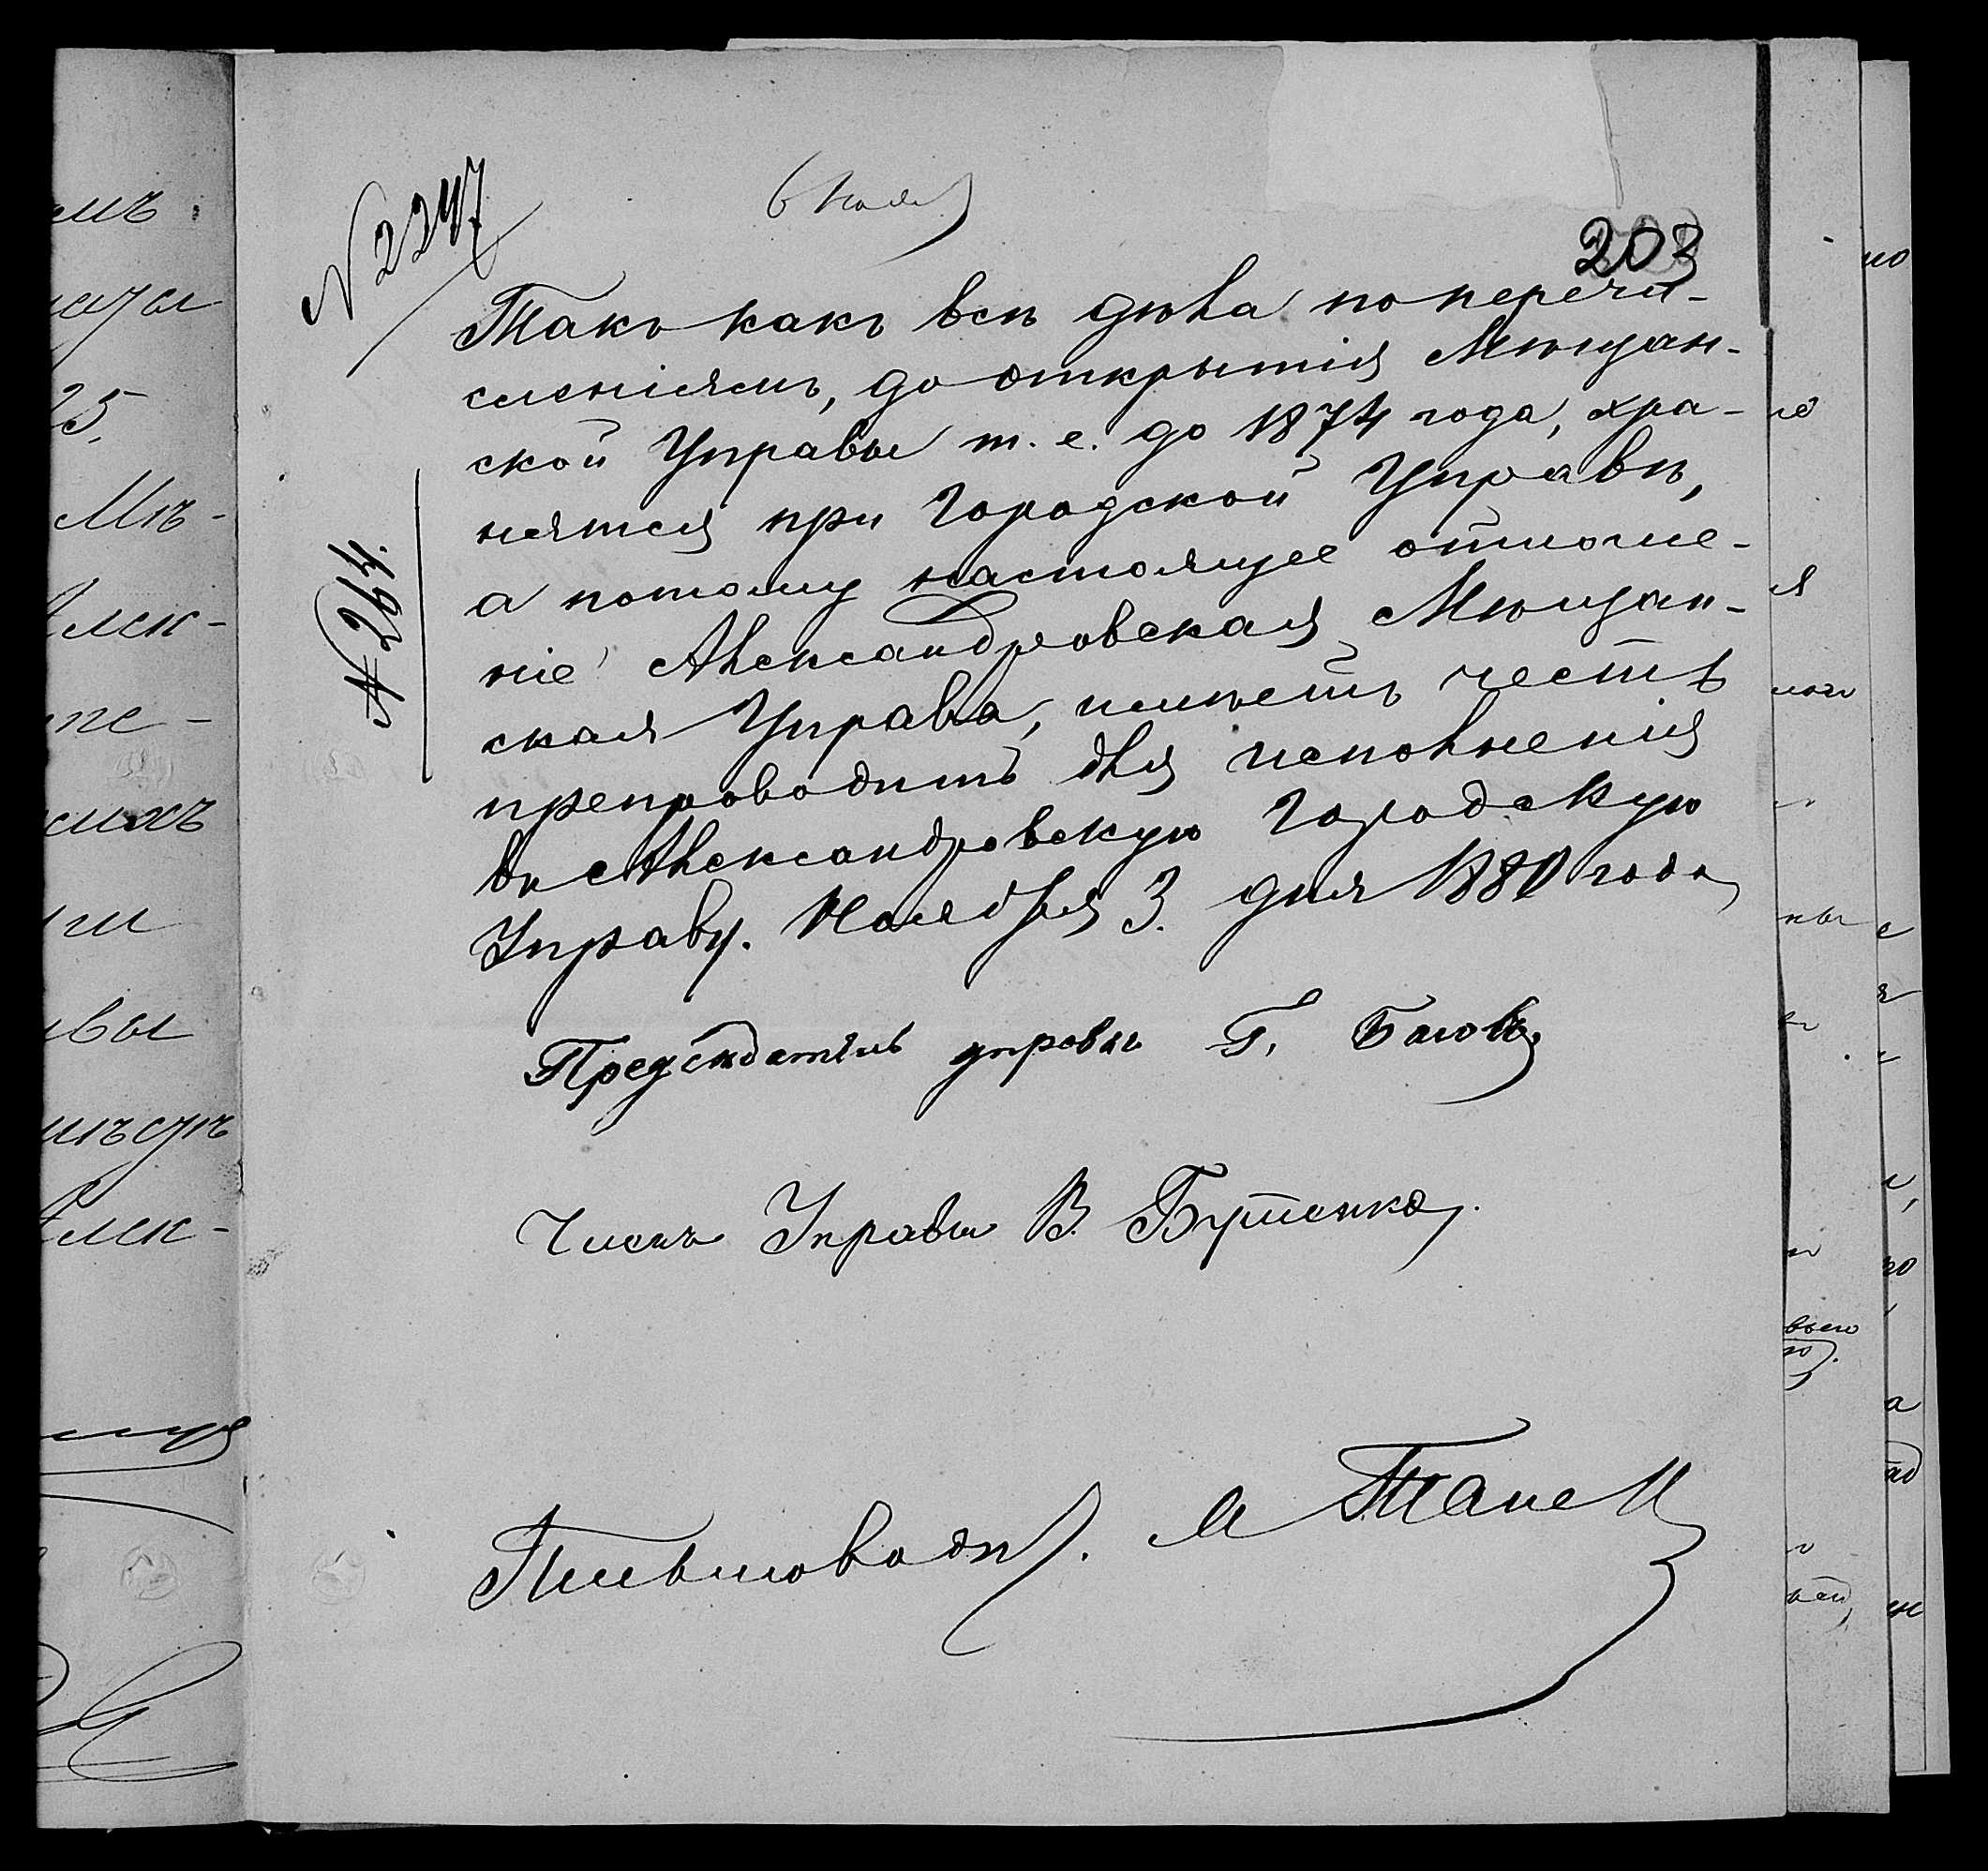 № 2247
6 Нояб
203
Такъ какъ всѣ дѣла по перечи-
сленіямъ, до открытія Мѣщан-
ской Управы т. е. до 1874 года, хра-
нятся при Городской Управѣ,
а потому настоящее отноше-
ніе Александровская Мѣщан-
ская Управа, имѣетъ честь
препроводить для исполненія
въ Александровскую Городскую
Управу. Ноября 3. дня 1880 года
№ 264.
Предсѣдатель управы Г.
Членъ Управы В. Бутенко.
Письмоводи.
мъ
25.
Мѣ-
Алек-
пе-
ихъ
ии
вы
Алек-